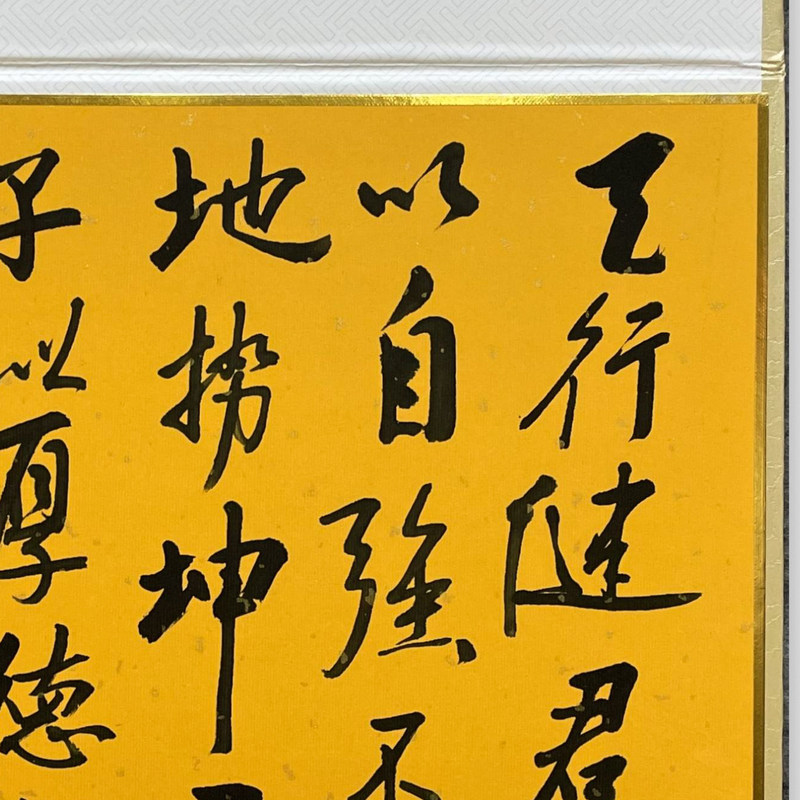 天行健君
以自强不
地势坤
子以厚德